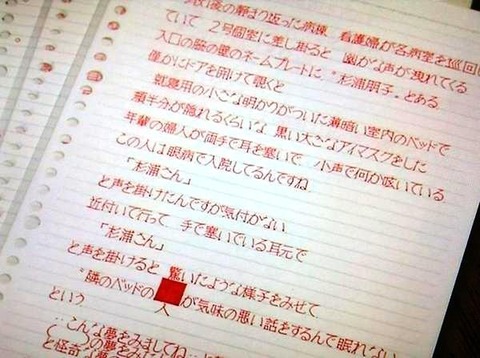 後の静まり返った病棟 看護婦が各病室を巡回し
ていて 2号個室に差し掛ると 幽かな声が洩れてくる
入口の脇の壁のネームプレートに "杉浦朋子" とある
僅かにドアを開けて覗くと
就寝用の小さな明かりがついた薄暗い室内のベッドで
顔半分が隠れるくらいな 黒い大きなアイマスクをした
年輩の婦人が両手で耳を塞いで 小声で何か呟いている
この人は眼病で入院してるんですね
「杉浦さん」
と声を掛けたんですが気付かない
近付いて行って 手で塞いでいる耳元で
「杉浦さん」
と声を掛けると 驚いたような様子をみせて
"隣のベッドの 人が気味の悪い話をするんで眠れない
という
こんな夢をみましてね
の夢をみた
と怪奇な夢